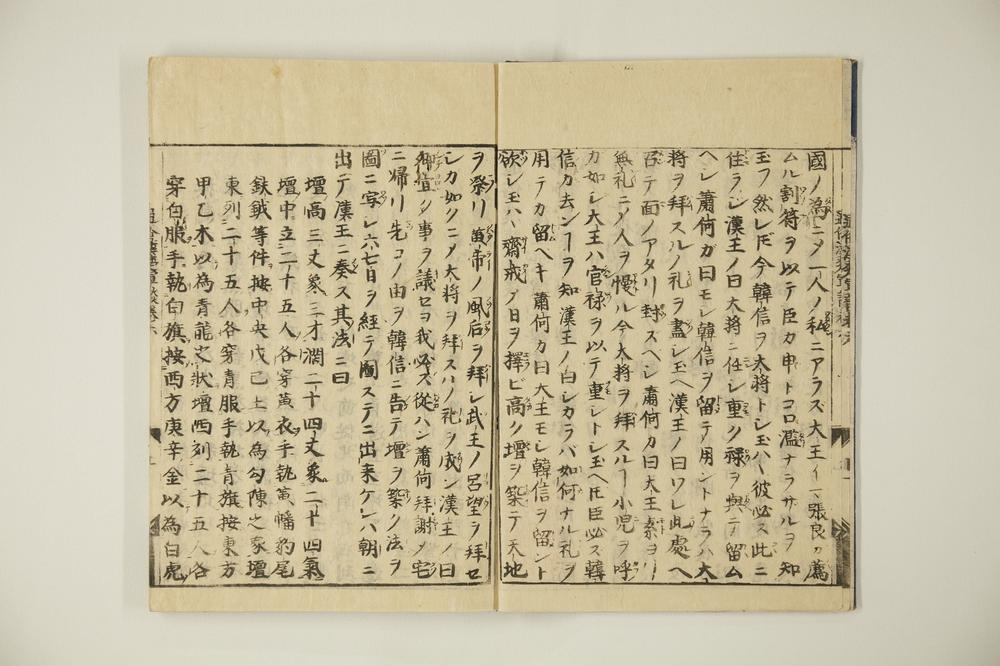 國ノ為ニメ一人ノ私ニアラズ大王イマ張良ガ薦
ムル割符ヲ以テ臣カ申トコロ濫ナラサルヲ知
玉フ然レ𪜈今韓信ヲ大將トシ玉ハヾ彼必ス此ニ
住ラン漢王ノ曰大將ニ任シ重ク禄ヲ與テ留ム
ヘシ蕭何ガ曰モシ韓信ヲ留テ用ントナラハ大
將ヲ拜スルノ礼ヲ盡シ玉ヘ漢王ノ曰ワレ此處ヘ
召テ面ノアタリ封スヘシ蕭何カ曰大王素ヨリ
無礼ニメ人ヲ慢ル今大將ヲ拜スルヿ小児ヲ呼
カ如シ大王ハ官禄ヲ以テ重シトシ玉ヘ𪜈臣必ス韓
信カ去ンヿヲ知漢王ノ曰シカラバ如何ナル礼ヲ
用テカ留ヘキ蕭何カ曰大王モシ韓信ヲ留ント
欲シ玉ハヾ齋戒メ日ヲ擇ビ高ク壇ヲ築テ天地
ヲ祭リ黄帝ノ風后ヲ拜シ武王ノ呂望ヲ拜セ
シカ如クニメ大將ヲ拜スルノ礼ヲ成シ漢王ノ曰
御宜ク事ヲ議セヨ我必ズ從ハン蕭何拜謝メ宅
ニ帰リ先コノ由ヲ韓信ニ告テ壇ヲ築ク法ヲ
圖ニ寫シ六七日ヲ經テ圖ステニ出来ケレハ朝ニ
出テ漢王ニ奏ス其法ニ曰
壇高三丈象三才濶二十四丈象二十四氣
壇中立二十五人各穿黄衣手執黄幡豹尾
鈇鉞等件按中央戊己土以為勾陳之象壇
東列二十五人各穿青服手執青旗按東方
甲乙木以為青龍之狀壇西列二十五人各
穿白服手執白旗按西方庚辛金以為白虎